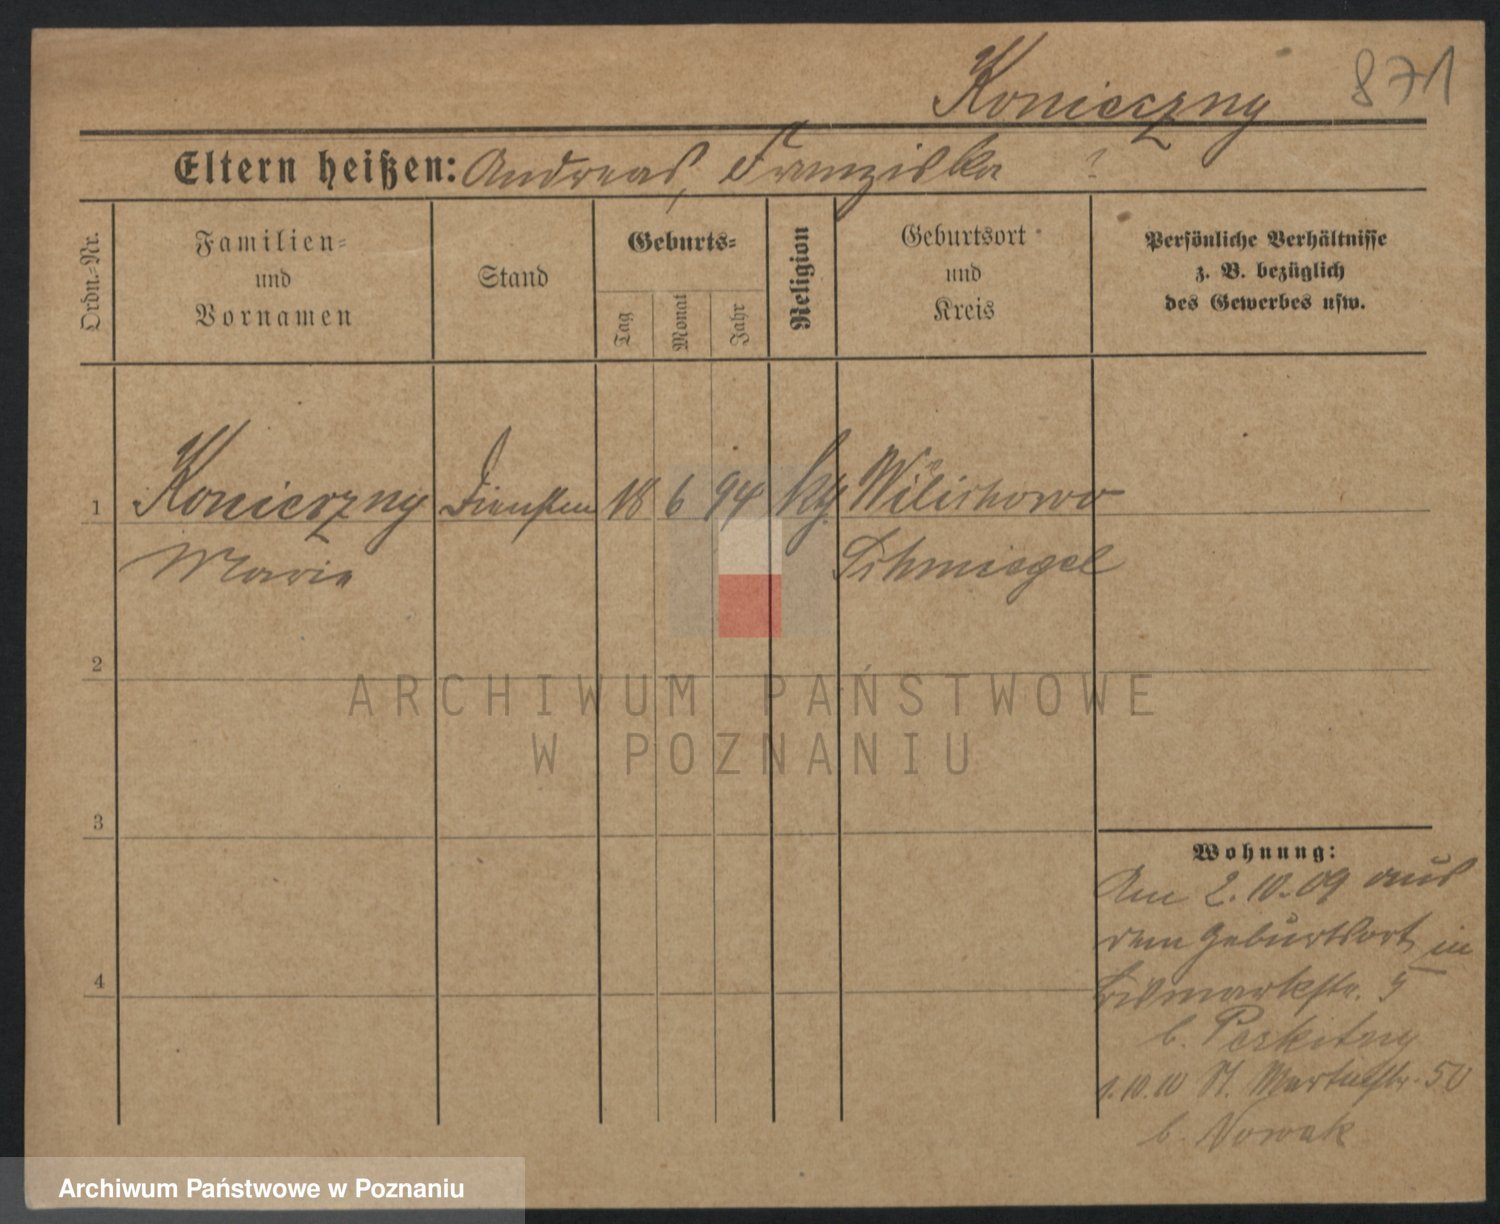 Konieczny 871
Eltern heißen: Andreas, Franziska ?
Ordn.=Nr.
Familien=
und
Vornamen
Stand
Geburts=
Tag
Monat
Jahr
Religion
Geburtsort
und
Kreis
Persönliche Verhältnisse
z. B. bezüglich
des Gewerbes usw.
1 Konieczny 18 6 94
Marie Schmiegel
2
ARCHIWUM PAŃSTWOWE
W POZNANIU
3
Wohnung:
Am 2.10.09 aus
dem Geburtsort in
Bismarkstr. 5
b.
1.10.10 St. Martinstr. 50
b. Nowak
4
Archiwum Państwowe w Poznaniu